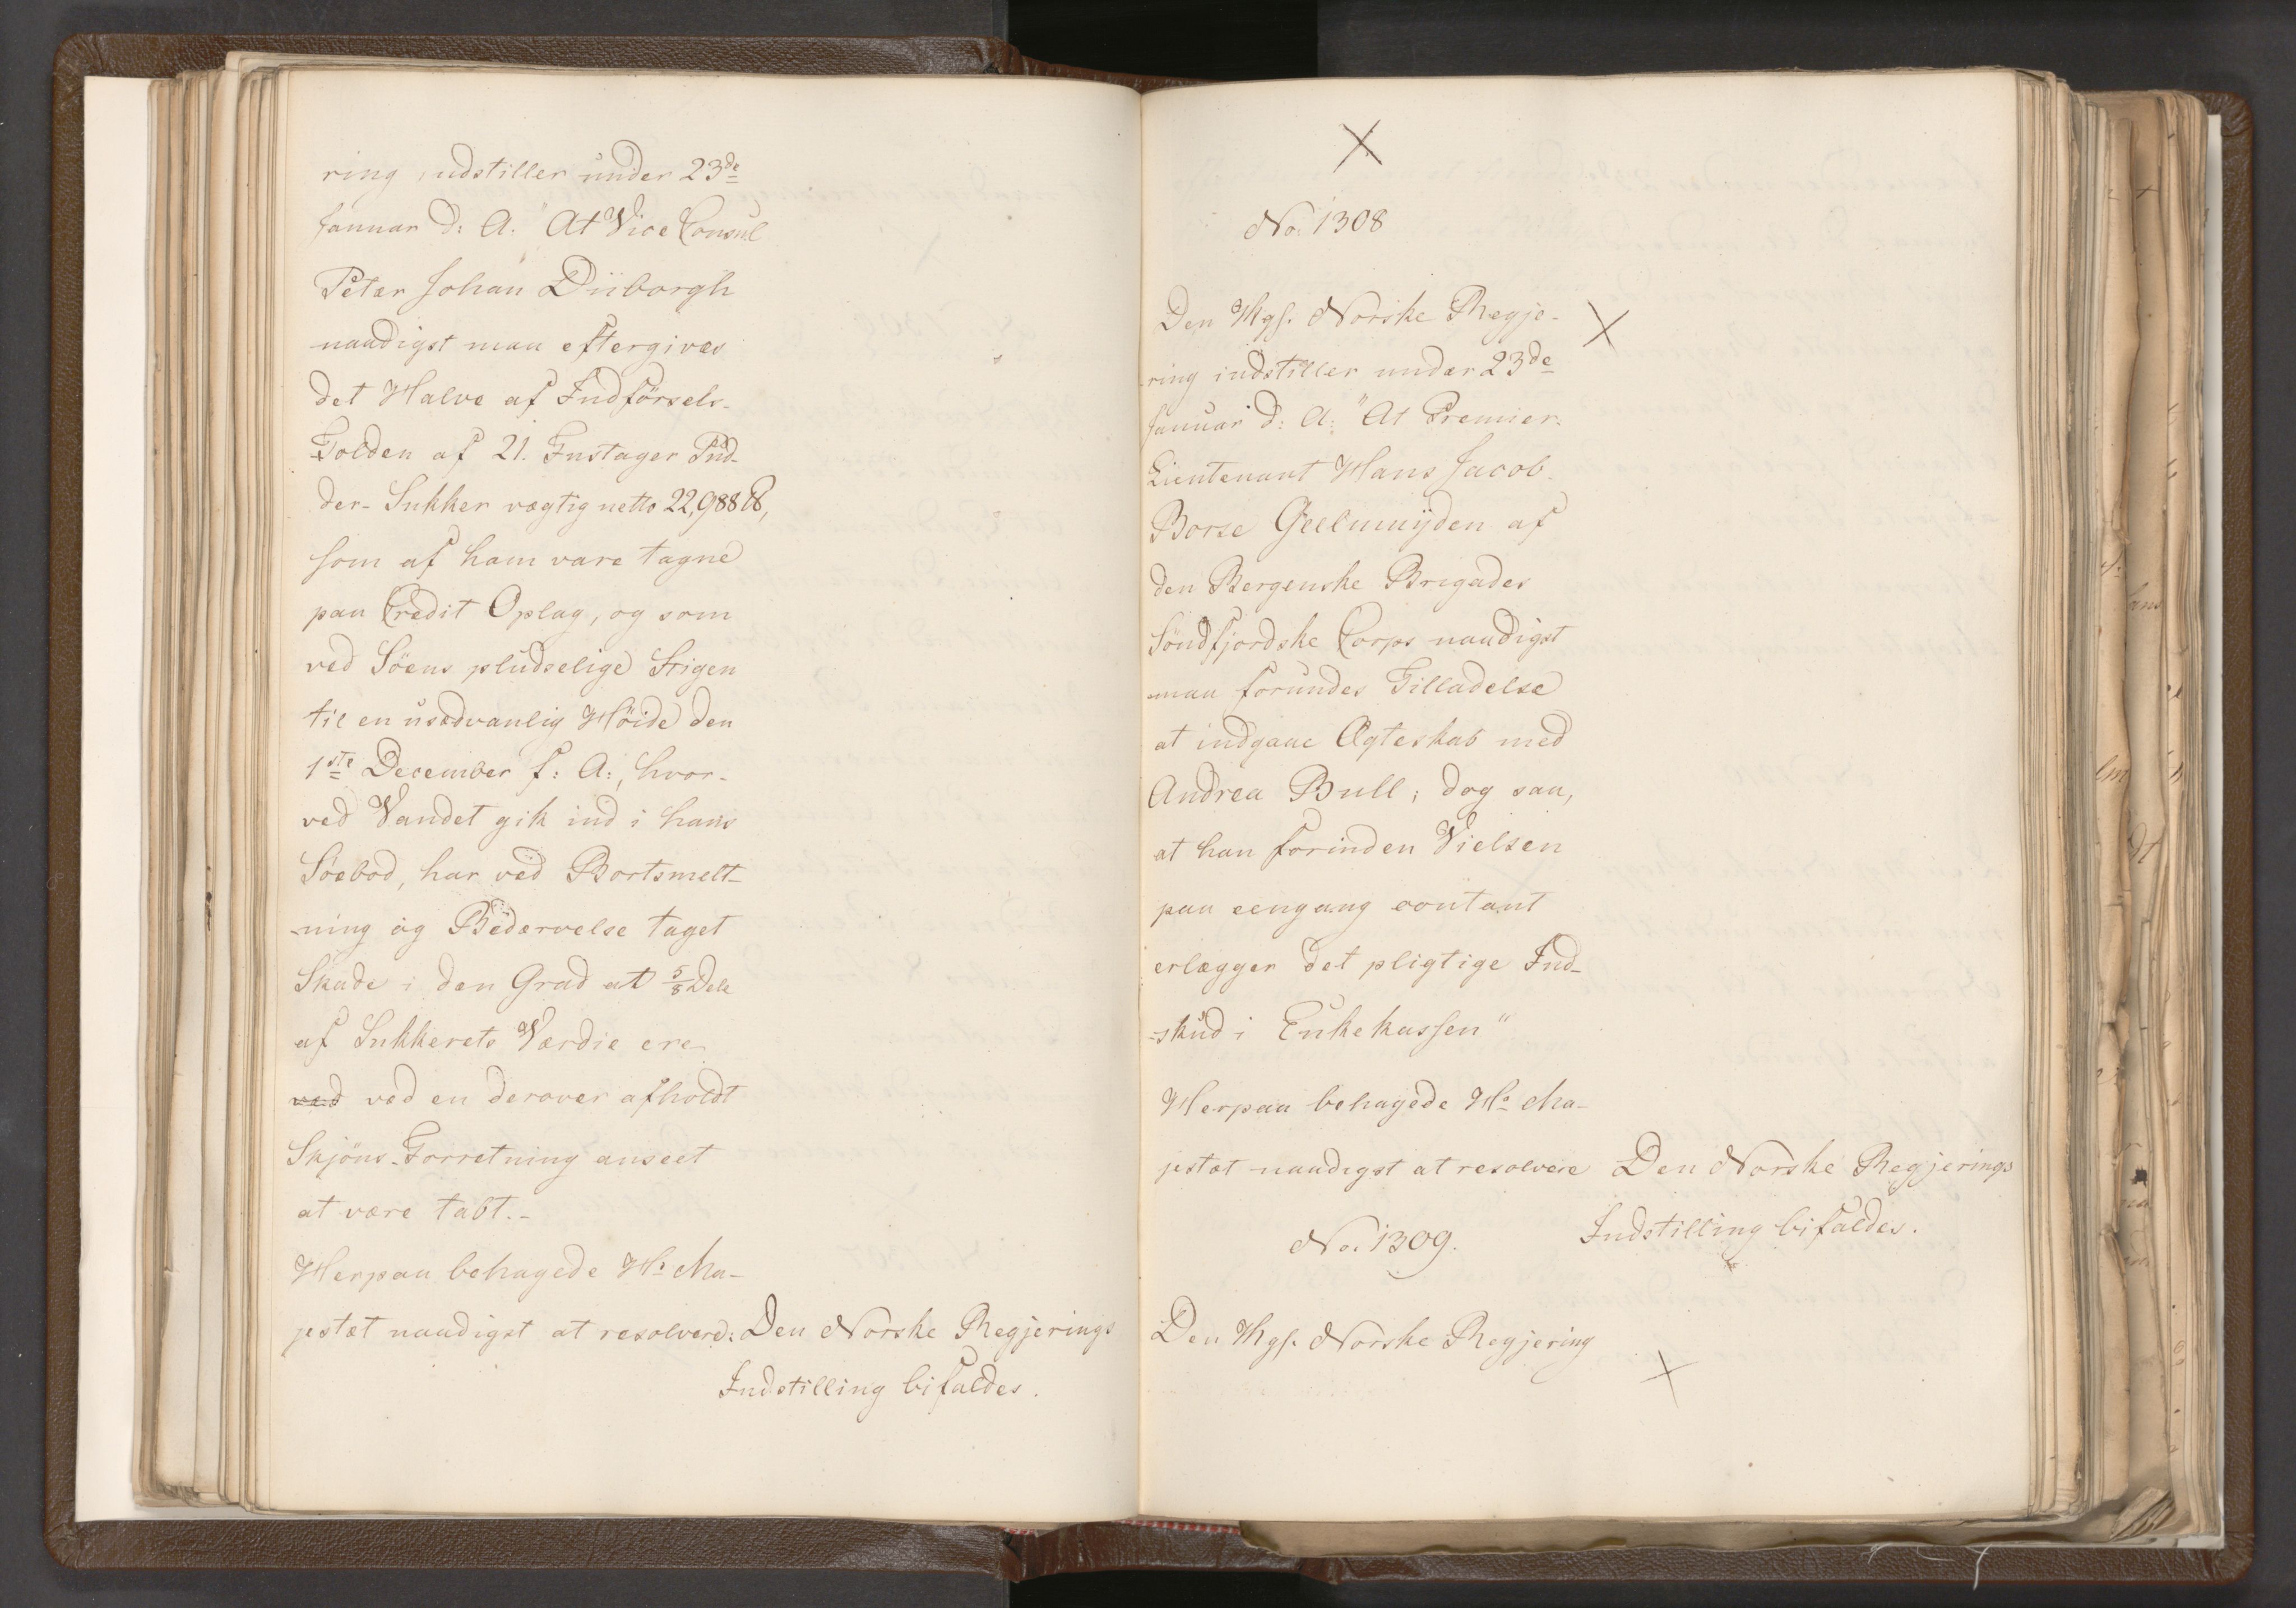 ring indstiller under 23de
Januar d: A: "At Vice Consul
Peter Johan Düborgh
naadigst maa eftergives
det Halve af Indförsels-
Tolden af 21. Fustager Pud-
der-Sukker vægtig netto 22,988 ℔,
som af ham vare tagne
paa Credit Oplag, og som
ved Söens pludselige Stigen
til en usædvanlig Höide den
1ste December f: A:, hvor-
ved Vandet gik ind i hans
Söebod, har ved Bortsmelt-
-ning og Bedærvelse taget
Skade i den Grad at 5/8 Dele
af Sukkerets Værdie ere
ved ved en derover afholdt
Skjöns-Forretning anseet
at være tabt.-
Herpaa behagede Hs Ma-
jestæt naadigst at resolvere: Den Norske Regjerings
Indstilling bifaldes.
No. 1308
Den Kgl. Norske Regje-
ring indstiller under 23de
Januar d: A: "At Premier-
Lieutenant Hans Jacob
Borse Geelmuÿden af
den Bergenske Brigades
Söndfjordske Corps naadigst
maa forundes Tilladelse
at indgaae Ægteskab med
Andrea Bull; dog saa,
at han forinden Vielsen
paa eengang contant
erlægger det pligtige Ind-
-skud i Enkekassen"
Herpaa behagede Hs Ma-
jestæt naadigst at resolvere Den Norske Regjerings
Indstilling bifaldes.
No. 1309.
Den Kgl. Norske Regjering